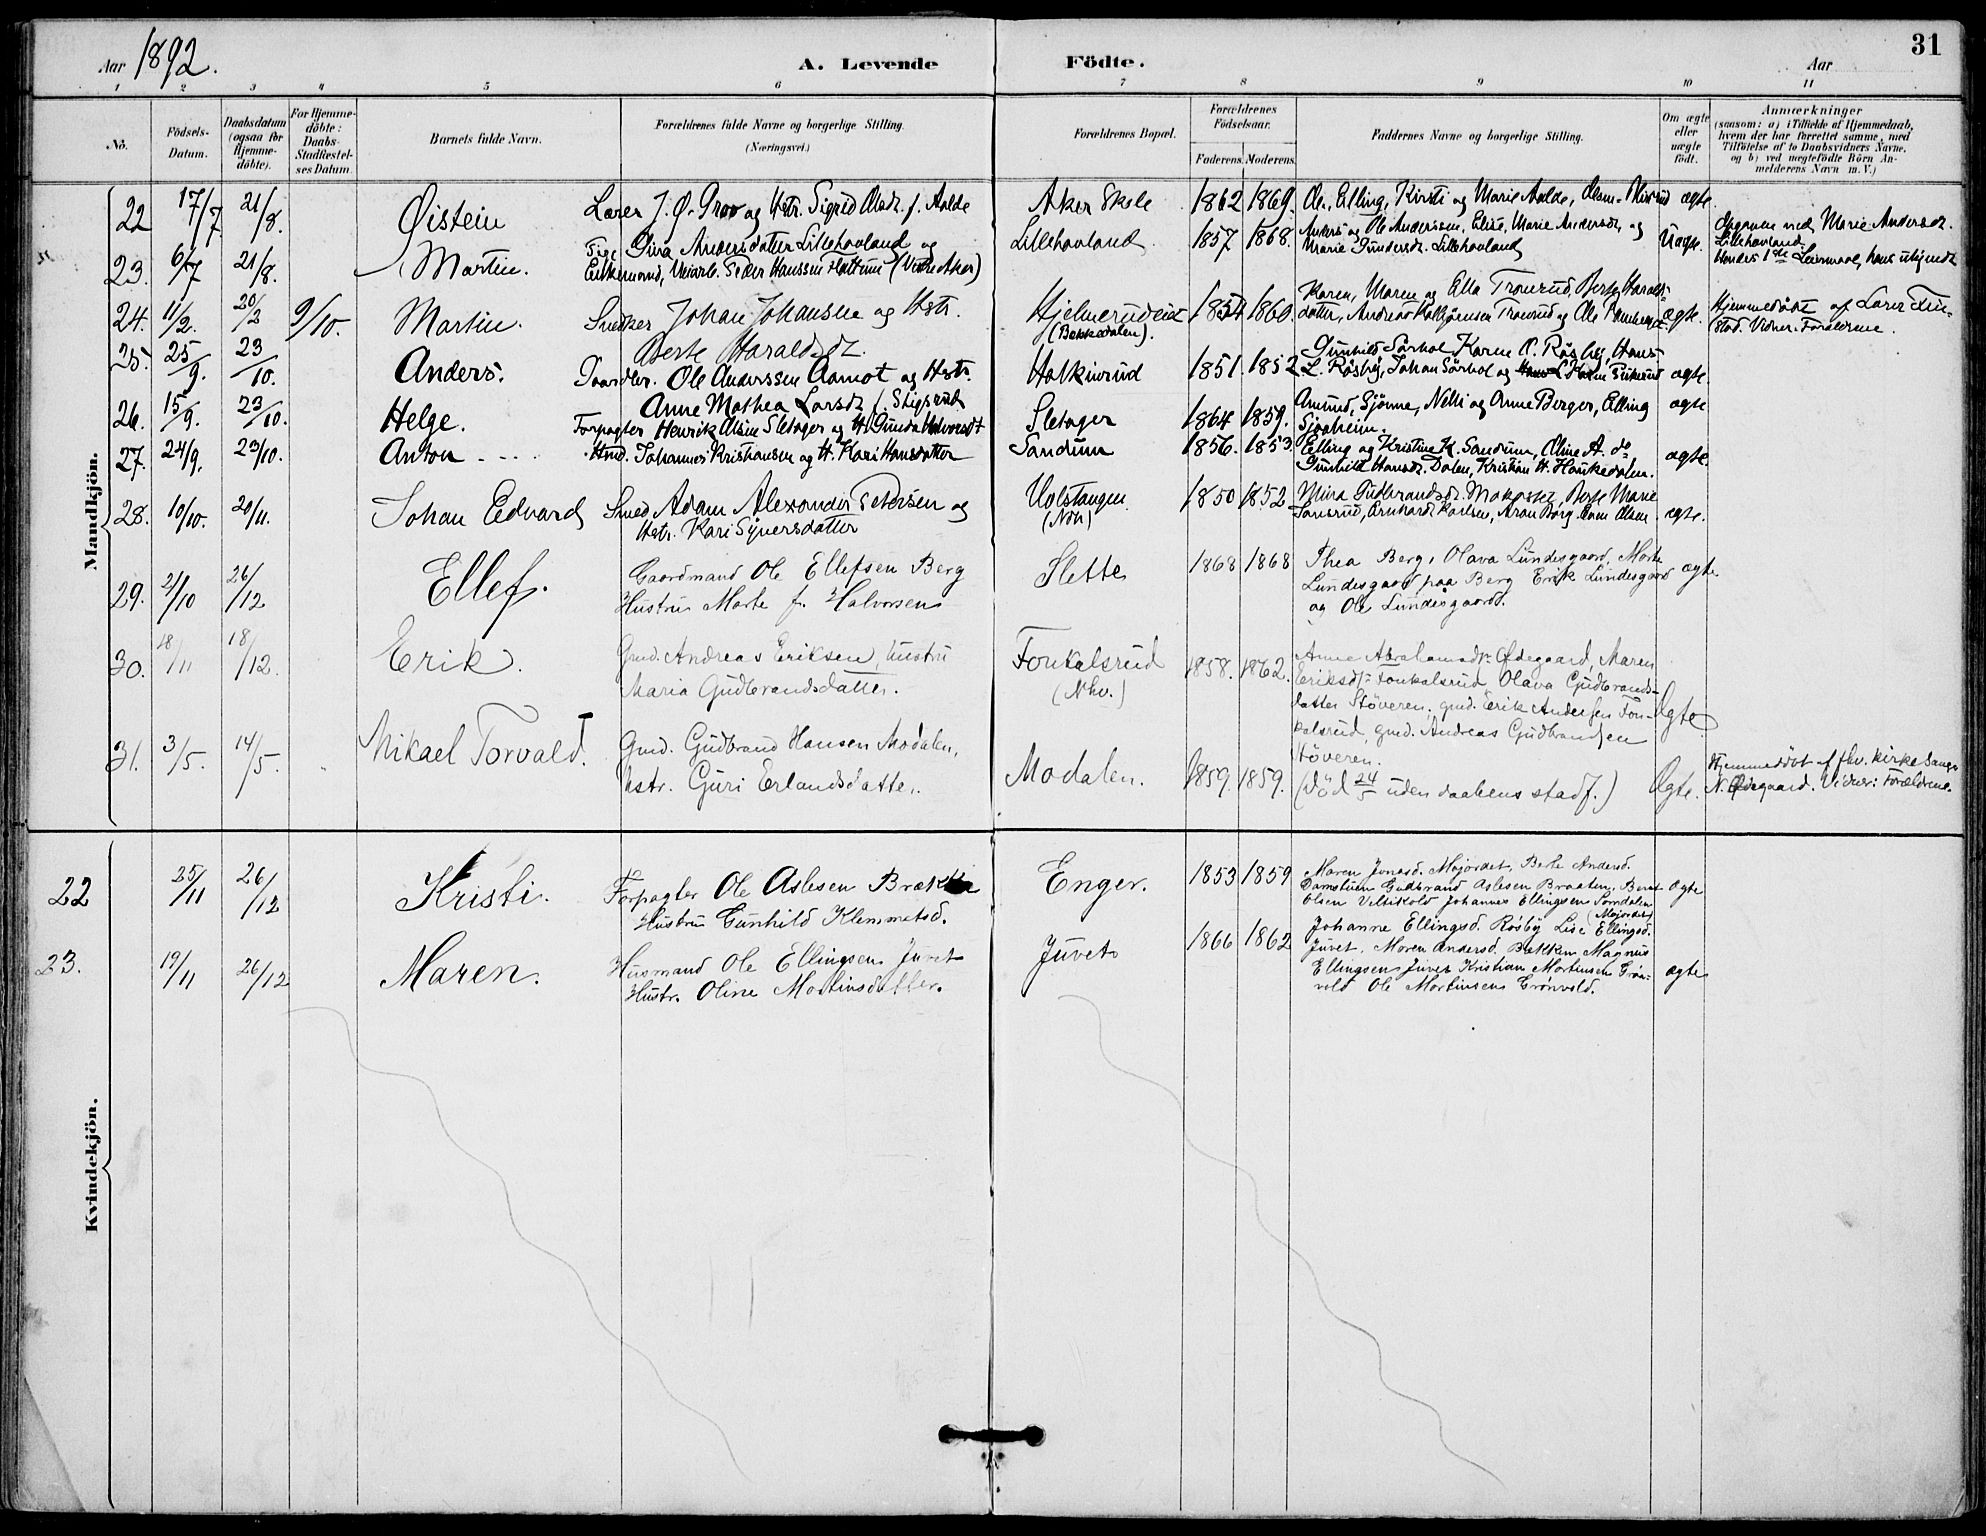 31
Aar 1892.
A. Levende Födte.
Aar
1 2 3 4 5 6 7 8 9 10 11
No.
Födsels-Datum.
Daabsdatum (ogsaa for Hjemmedöbte).
For Hjemmedöbte: Daabs-Stadfæstelses Datum
Barnets fulde Navn.
Forældrenes fulde Navne og borgerlige Stilling. (Næringsvei.)
Forældrenes Bopæl.
Forældrenes Födselsaar.
Faderens. Moderens.
Faddernes Navne og borgerlige Stilling.
Om ægte eller uægte födt.
Anmærkninger
(saasom: a) i Tilfælde af Hjemmedaab,
hvem der har forrettet samme, med
Tilföielse af to Daabsvidners Navne,
og b) ved uægtefödte Börn An-
melderens Navn m. V.)
Mandkjön.
22 17/7 21/8. Øistein Lærer J. Ø. Groo og Hstr. Sigrid Olsdr. f. Aalde Aker Skole 1862 1869. Ole, Elling, Kirsti og Marie Aalde, ægte
23. 6/7 21/8. Martin. Pige Gura Andersdatter Lillehovland og
Enkemand, Veiarb. Peder Hanssen (Vestre Aker) Lillehovland 1857 1868. Anders og Ole Anderssen, Elise, Marie Andersdr. og
Marie Gundersdr. Lillehovland Uægte. Opgaven ved Marie Andersdr.
Lillehovland.
Hendes 1ste Leiermaal, hans ubekjendt
24. 11/2. 20/2 9/10. Martin. Snedker Johan Johansen og Hstr.
Berte Haraldsdr. Hjelmerudeiet
(Bekkedalen). 1854 1860. Karen, Maren og Ella Tronrud, Berte Haralds-
datter, Andreas Tronrud og Ole ægte. Hjemmedöbt af Lærer Fin-
stad. Vidner: Forældrene.
25. 25/9. 23/10. Anders. Gaardbr. Ole Anderssen Aamot og Hstr.
Anne Mathea Larsdr. f. Stigsrud Halkinrud 1851. 1852 Gunhild Sörhol Karen O. Rösbey, Hans
L. Rösbey, Johan Sörhol og ægte.
26. 15/9. 23/10. Helge. Forpagter Henrik Olsen Sletager og H. Gunda Halvorsdt Sletager 1864 1859. Amund, Sjönne, Nelli og Anne Berger, Elling
Sjoaheim. ægte
27. 24/9. 23/10. Anton Hmd. Johannes Kristiansen og H. Kari Hansdatter Sandum 1856. 1853. Elling og Kristine K. Sandum, Oline A. do
Gunhild Hansdr. Dalen, Kristian H. Haukedalen. ægte.
28. 10/10. 20/11. Johan Edvard Smed Adam Alexander Petersen og
Hstr. Kari Syversdatter Volstangen
(Ndh) 1850 1852 Mina Gudbrandsdr. Berte Marie
Tansrud, Arnhard Karlsen, Aron Borg Olsen ægte.
29. 2/10 26/12 Ellef. Gaardmand Ole Ellefsen Berg
Hustru Marte f. Halvorsen Slette 1868 1868 Thea Berg, Olava Lundesgaard, Marte
Lundesgaard paa Berg Erik Lundesgaard
og Ole Lundesgaard. ægte.
30. 18/11 18/12. Erik. Gmd. Andreas Eriksen, hustru
Maria Gudbrandsdatter. Fonkalsrud
(Nhv.) 1858. 1862. Anne Abrahamsdr. Ødegaard, Maren
Eriksdr. Fonkalsrud Olava Gudbrands-
datter Støveren, gmd. Erik Andersen Fon-
kalsrud, gmd. Andreas Gudbrandsen
Støveren. Ægte
31. 3/5. 14/5. Mikael Torvald. Gmd. Gudbrand Hansen Modalen,
hstr. Guri Erlandsdatter. Modalen. 1859. 1859. (Död 24/5 uden daabens stadf.) Ægte. Hjemmedöbt af fhv. kirkesanger
N. Ødegaard. Vidner: Forældrene.
Kvindekjön.
22 25/11 26/12 Kristi. Forpagter Ole Aslesen Brække
Hustru Gunhild Klemmetsd. Enger. 1853 1859 Maren Jonasd. Majordet, Berte Andersd.
Damstuen Gudbrand Aslesen Braaten, Bernt
Olsen Veltikold Johannes Ellingsen Sörndalen
(Majordet) ægte
23. 19/11 26/12 Maren. Husmand Ole Ellingsen Juvet
Hustr. Oline Martinsdatter. Juvet 1866 1862 Johanne Ellingsd. Røsby Lise Ellingsd.
Juvet, Maren Andersd. Bækken Magnus
Ellingsen Juvet Kristian Martinsen Grön-
vold Ole Martinsen Grönvold. ægte